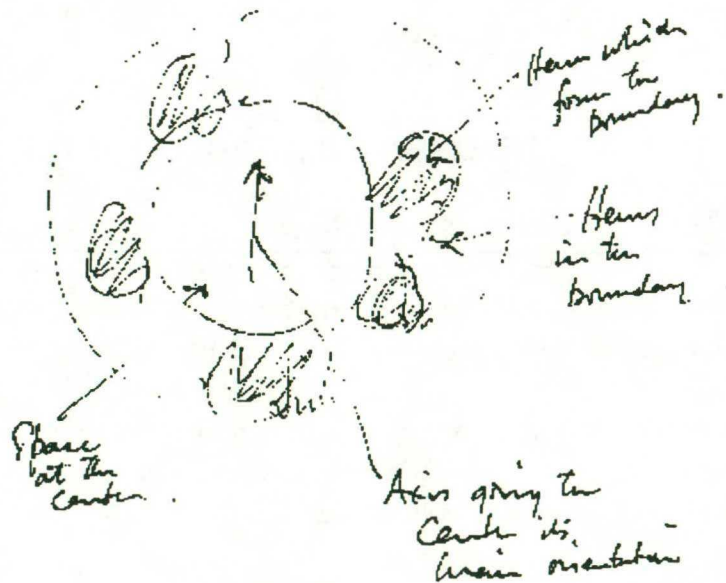 Items which
form the
boundary.
Items
in the
boundary
Space
at the
center.
Axis giving the
center its
main orientation